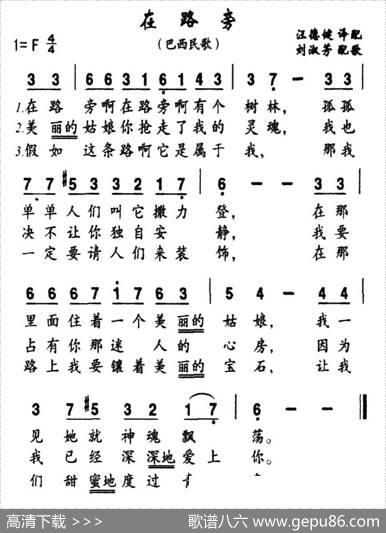 在 路 旁
1=F 4/4
（巴西民歌）
汪德健 译配
刘淑芳 配歌
3 3 | 6 6 3 1 6 1 4 3 | 3 7 - 3 3 |
1.在 路 旁啊在路旁啊有个 树林， 孤孤
2.美 丽的 姑娘你抢走了我的 灵魂， 我也
3.假 如 这条路啊它是属于 我， 那我
7 7 #5 3 3 2 1 7 | 6 - - 3 3 |
单单人们叫它撒力 登， 在那
决不让你独自安 静， 我要
一定要请人们来装 饰， 在那
6 6 6 7 1 7 6 3 | 5 4 - 4 |
里面住着一个美丽的 姑娘， 我一
占有你那迷 人的 心房， 因为
路上我要镶着美丽的 宝石， 让我
3 7 #5 3 2 1 7 | 6 - -
见她就神魂飘 荡。
我已经深深地爱上 你。
们甜蜜地度过
高清下载 >>>
歌谱八六 www.gepu86.com